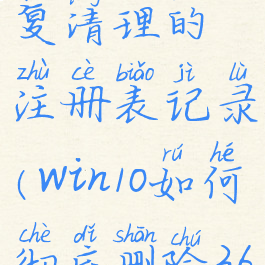 复清理的
zhù cè biǎo jì lù
注册表记录
rú hé
(win10如何
chè dǐ shān chú
彻底删除36